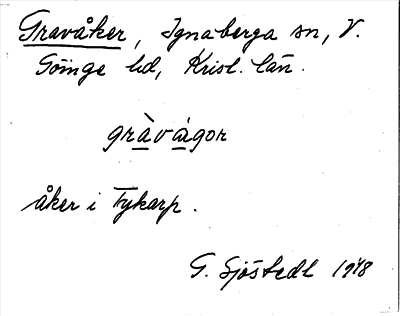 Gravåker, Ignaberga sn, V.
Göinge hd, Krist. län.
gràvágor
åker i Tykarp.
G. Sjöstedt 1918